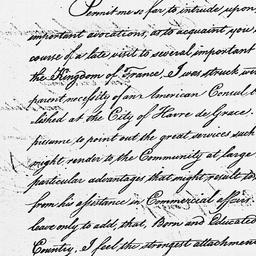 Permit me so far to intrude upon
important avocations, as to acquaint you
course of a late visit to several important
the Kingdom of France, I was struck wi
parent necessity of an American Consul b
clished at the City of Havre de Grace.
presume to point out the great services such
might render to the Community at large
particular advantages that might result to
from his assistance in Commercial affairs.
leave only to add, that, Born and Educated
Country, I feel the strongest attachmen